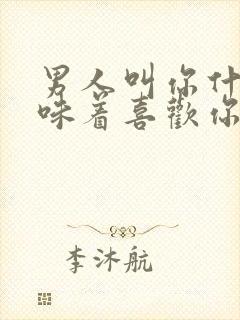 男人叫你什
味着喜歡你
李沐航